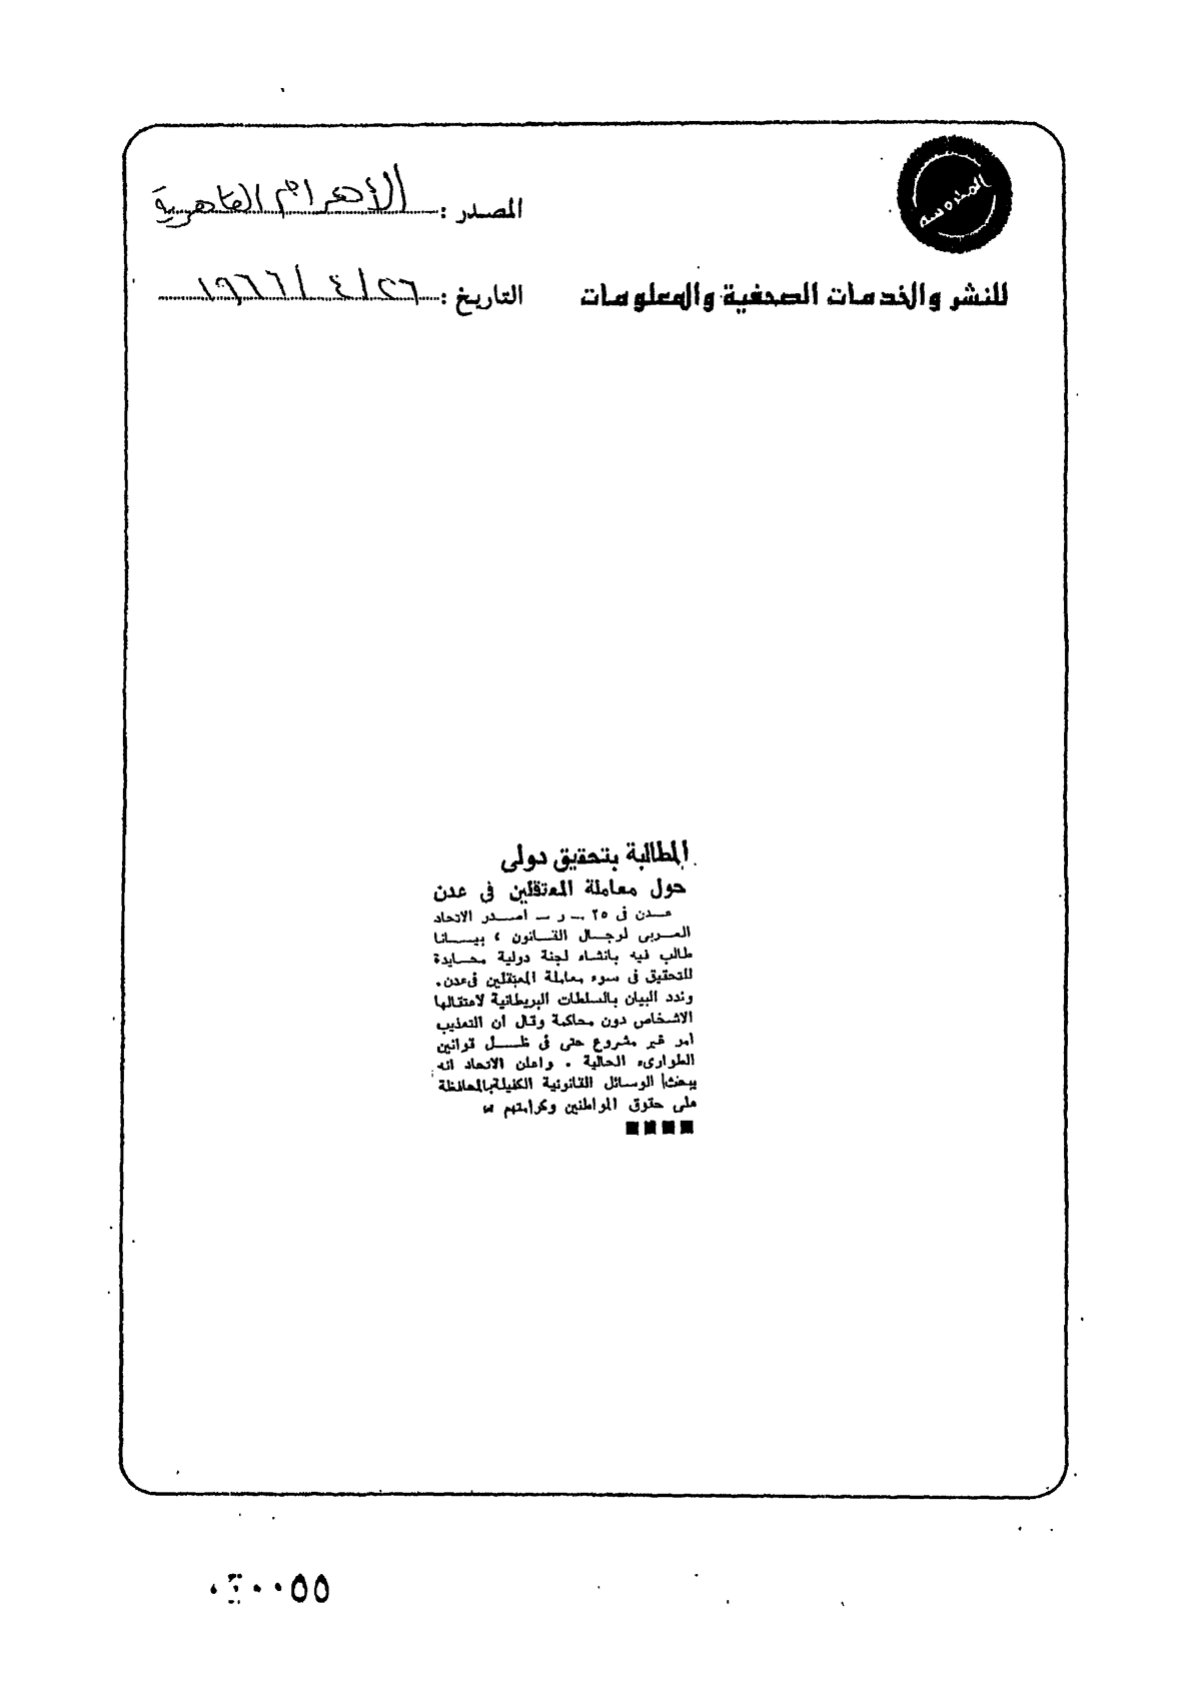 المصدر : الأهرام القاهرية
للنشر والخدمات الصحفية والمعلومات
التاريخ : ٢٦/٤/١٩٦٦
المطالبة بتحقيق دولى
حول معاملة المعتقلين فى عدن
عدن فى ٢٥ ــ ر ــ اصدر الاتحاد
العربى لرجال القانون ، بيانا
طالب فيه بانشاء لجنة دولية محايدة
للتحقيق فى سوء معاملة المعتقلين فى عدن .
وندد البيان بالسلطات البريطانية لاعتقالها
الاشخاص دون محاكمة وقال ان التعذيب
امر غير مشروع حتى فى ظل قوانين
الطوارىء الحالية . واعلن الاتحاد انه
يبحث الوسائل القانونية الكفيلة بالمحافظة
على حقوق المواطنين وكرامتهم